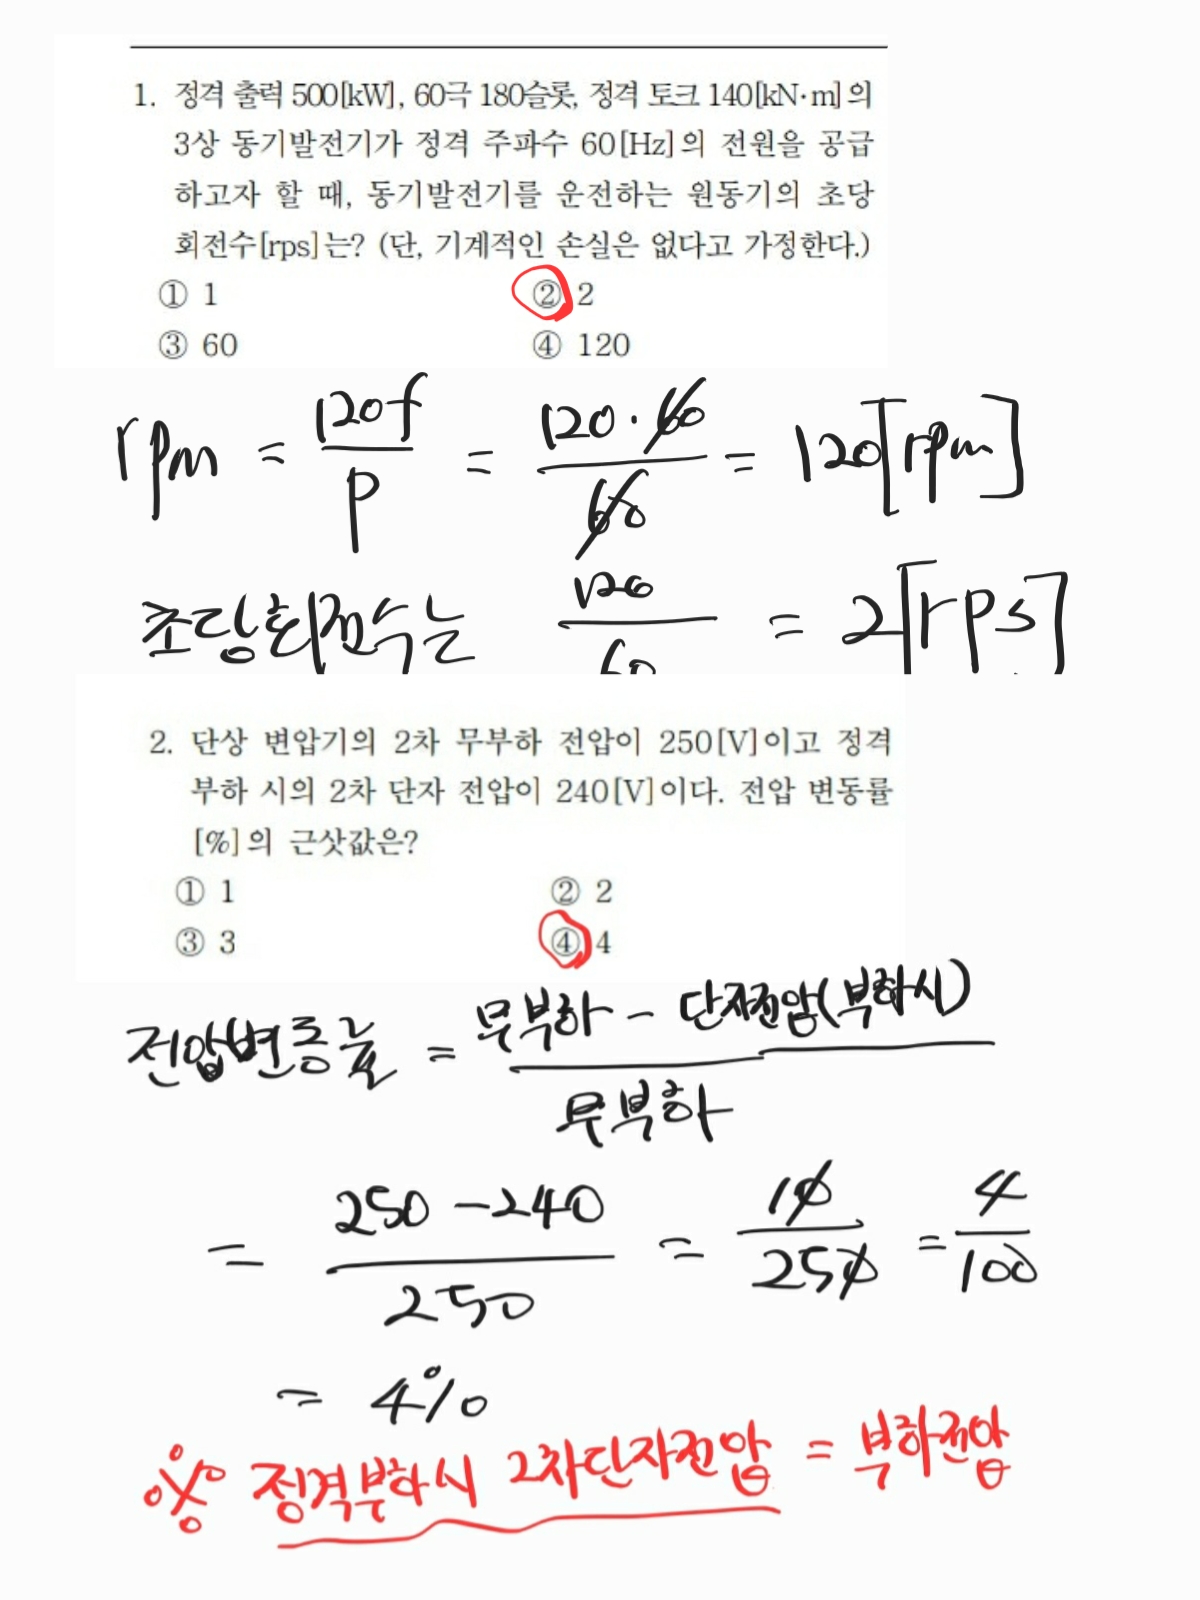 1. 정격 출력 500[kW], 60극 180슬롯, 정격 토크 140[kN·m]의
3상 동기발전기가 정격 주파수 60[Hz]의 전원을 공급
하고자 할 때, 동기발전기를 운전하는 원동기의 초당
회전수[rps]는? (단, 기계적인 손실은 없다고 가정한다.)
① 1 ② 2
③ 60 ④ 120
rpm = 120f / P = 120·60 / 60 = 120[rpm]
초당회전수는 120 / 60 = 2[rps]
2. 단상 변압기의 2차 무부하 전압이 250[V]이고 정격
부하 시의 2차 단자 전압이 240[V]이다. 전압 변동률
[%]의 근삿값은?
① 1 ② 2
③ 3 ④ 4
전압변동률 = 무부하 - 단자전압(부하시) / 무부하
= 250-240 / 250 = 10 / 250 = 4 / 100
= 4%
※ 정격부하시 2차단자전압 = 부하전압